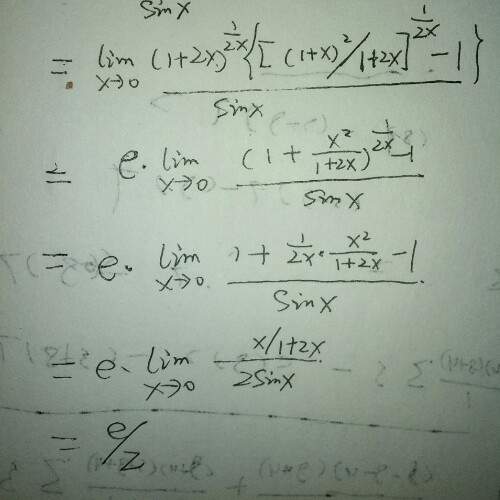 sinx
= lim x→0 (1+2x)^(1/2x) {[(1+x)²/1+2x]^(1/2x) - 1} / sinx
= e· lim x→0 (1 + x²/(1+2x))^(1/2x) - 1 / sinx
= e· lim x→0 1 + 1/2x · x²/(1+2x) - 1 / sinx
= e· lim x→0 x/1+2x / 2sinx
= e/2